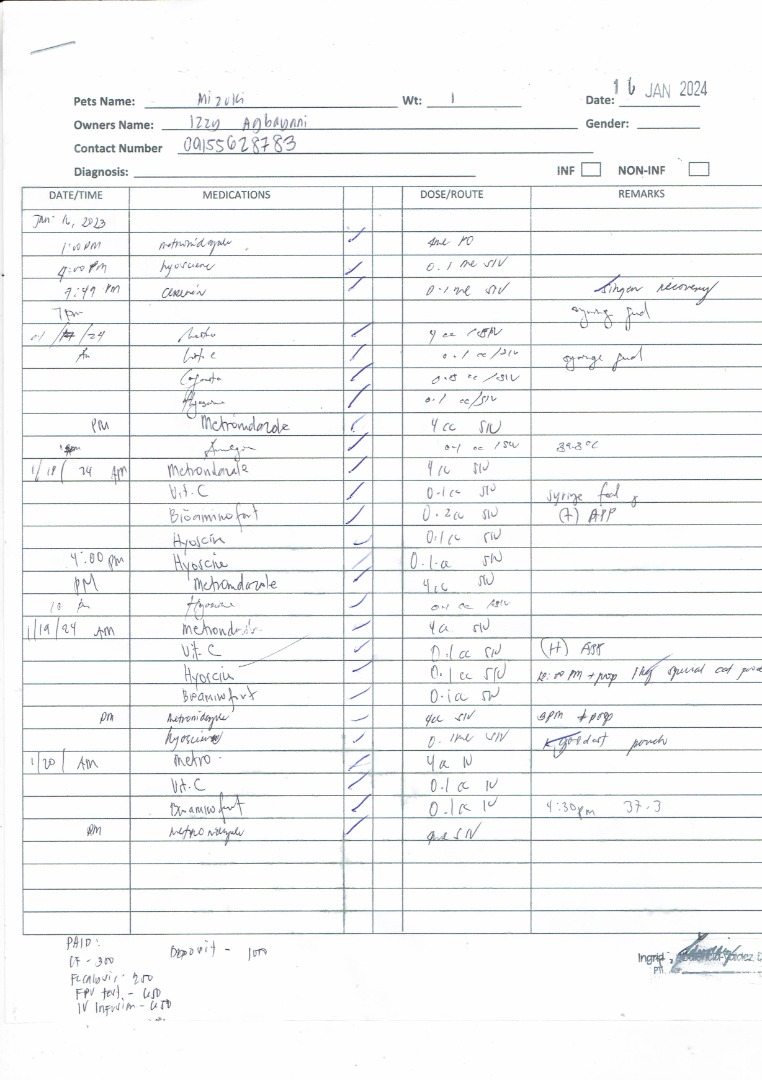 16 JAN 2024
Pets Name: Mizuki Wt: 1 Date:
Owners Name: Izzy Agbayani Gender:
Contact Number 09155628783
Diagnosis: INF NON-INF
DATE/TIME MEDICATIONS DOSE/ROUTE REMARKS
Jan. 16, 2023
1:00 PM metronidazole 4ml PO
4:00 PM hyoscine 0.1 ml SIV
9:49 PM cerenia 0.1 ml SIV recovery
7pm syringe feed
/24 4 cc /SIV
Am 0.1 cc /SIV syringe feed
cc /SIV
Hyoscine 0.1 cc/SIV
PM Metronidazole 4 cc SIV
0.1 cc /SIV 39.3°C
1/18/24 AM Metrondazole 4 cc SIV
Vit. C 0.1 cc SIV syringe feed
Bioaminofort 0.2cc SIV (+) APP
Hyoscin 0.1cc SIV
4:00 pm Hyosciu 0.1cc SIV
PM Metrondazole 4cc SIV
10 pm Hyoscine 0.1 cc SIV
1/19/24 AM 4cc SIV
Vit. C 0.1cc SIV (+)
Hyosciu 0.1cc SIV + poop special cat
Bioaminofort 0.1cc SIV
PM metronidazole 4cc SIV 3pm + poop
hyoscine 0.1ml SIV pouch
1/20/ AM Metro 4cc IV
Vit. C 0.1cc IV
Bioaminofort 0.1cc IV 4:30pm 37.3
PM metronidazole 4ml SIV
PAID: Deposit - 1000
CF - 300
FPV test. - 650
IV Infusion - 650
Ingrid